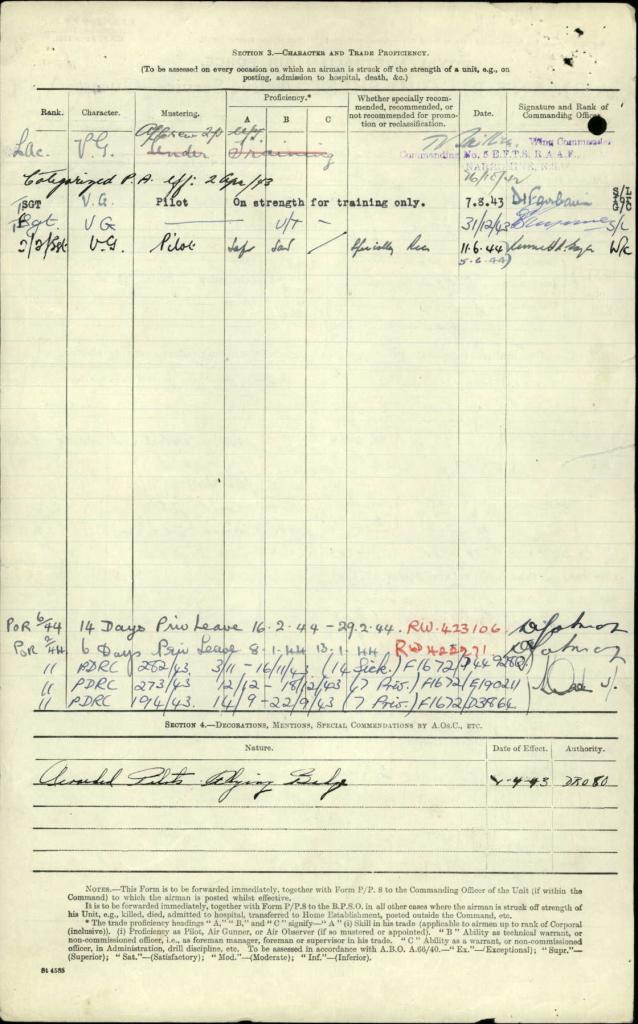 SECTION 3.—CHARACTER AND TRADE PROFICIENCY.
(To be assessed on every occasion on which an airman is struck off the strength of a unit, e.g., on
posting, admission to hospital, death, &c.)
Rank. Character. Mustering. Proficiency.* Whether specially recommended, recommended, or not recommended for promotion or reclassification. Date. Signature and Rank of Commanding Officer
A B C
Lac. V.G. Aircrew Under Training Wing Commander
Commanding No. 5 E.F.T.S. R.A.A.F.,
Categorized P.A. eff: 2 Apr/43
SGT V.G. Pilot On strength for training only. 7.8.43 S/L
Sgt. VG U/T 31/12/43 S/L
V.G. Pilot Specially Rec 11.6.44 W/C
5.6.44)
POR 6/44 14 Days Priv Leave 16.2.44 - 29.2.44. RW.423106
POR 2/44 6 Days Priv Leave 8.1.44 13.1.44 RW
" PDRC 282/43. 3/11 - 16/11/43 (14 Sick.) F1672/
" PDRC 273/43 12/12 - 18/12/43 (7 Priv.) F1672/E190211
" PDRC 194/43. 14/9 - 22/9/43 (7 Priv.) F1672/D3864
SECTION 4.—DECORATIONS, MENTIONS, SPECIAL COMMENDATIONS BY A.Os.C., ETC.
Nature. Date of Effect. Authority.
Awarded Pilots Flying Badge 2-4-43 DRO80
NOTES.—This Form is to be forwarded immediately, together with Form P/P. 8 to the Commanding Officer of the Unit (if within the
Command) to which the airman is posted whilst effective.
It is to be forwarded immediately, together with Form P/P.8 to the B.P.S.O. in all other cases where the airman is struck off strength of
his Unit, e.g., killed, died, admitted to hospital, transferred to Home Establishment, posted outside the Command, etc.
* The trade proficiency headings "A," "B," and "C" signify—"A" (i) Skill in his trade (applicable to airmen up to rank of Corporal
(inclusive)). (i) Proficiency as Pilot, Air Gunner, or Air Observer (if so mustered or appointed). "B" Ability as technical warrant, or
non-commissioned officer, i.e., as foreman manager, foreman or supervisor in his trade. "C" Ability as a warrant, or non-commissioned
officer, in Administration, drill discipline, etc. To be assessed in accordance with A.B.O. A.66/40.—"Ex."—(Exceptional); "Supr."—
(Superior); "Sat."—(Satisfactory); "Mod."—(Moderate); "Inf."—(Inferior).
St 4535